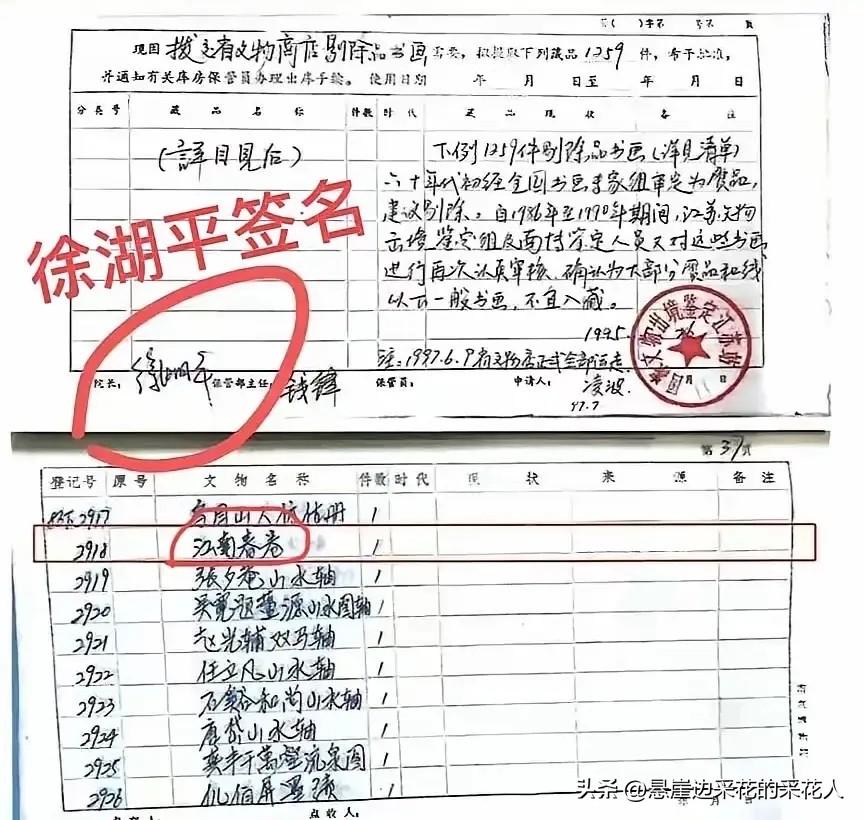 第( )字第 号第 页
现因 拨交省文物商店剔除品书画 需要，拟提取下列藏品 1259 件，希予批准，
并通知有关库房保管员办理出库手续。使用日期 年 月 日至 年 月 日
分类号 藏品名称 件数 时代 藏品现状 备注
(詳目見后)
下例1259件剔除品书画(详见清单)
六十年代初经全国书画专家组审定为赝品，
建议剔除。自1986年至1990年期间，江苏文物
出境鉴定组及南博鉴定人员又对这些书画
进行再次认真审核，确认为大部分赝品和线
以下一般书画，不宜入藏。
1995.
注：1997.6.9省文物店正式全部
徐湖平签名
院长： 徐湖平 保管部主任： 钱锋 保管员： 申请人： 凌波
97.7
国家文物出境鉴定江苏站
第 31 页
登记号 原号 文物名称 件数 时代 现状 来源 备注
2917 1
2918 江南春卷 1
2919 張夕庵山水轴 1
2920 吴寬题董源山水图轴 1
2921 赵光辅双马轴 1
2922 任立凡山水轴 1
2923 石谿和尚山水轴 1
2924 唐岱山水轴 1
2925 流泉图 1
2926 仇伯屏墨蹟 1
点收人：
年 月 日
头条 @悬崖边采花的采花人